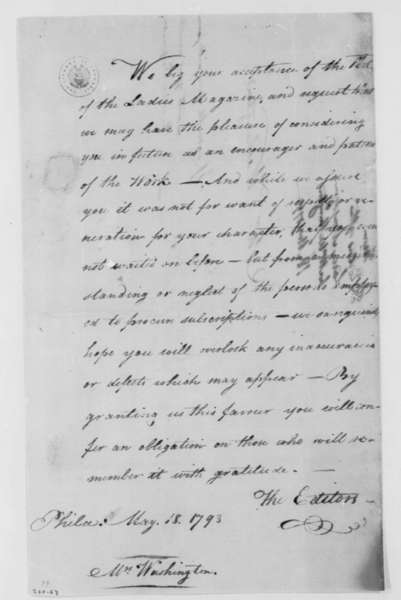 We beg your acceptance of the
of the Ladies Magazine, and request that
we may have the pleasure of considering
you in future as an encourager and patron
of the Work — And while we assure
you it was not for want of respect or ve-
neration for your character, that you were
not waited on before — but from a misunder-
standing or neglect of the persons employ-
ed to procure subscriptions — we
hope you will overlook any inaccuracies
or defects which may appear — By
granting us this favour you will con-
fer an obligation on those who will re-
member it with gratitude. —
The Editors
Philaa. May. 18. 1793
Mrs Washington.